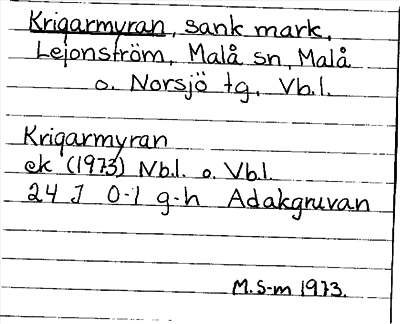 Krigarmyran, sank mark,
Lejonström, Malå sn, Malå
o. Norsjö tg, Vb.l.
Krigarmyran
ek (1973) Nb.l. o. Vb.l.
24 J 0-1 g-h Adakgruvan
M.S-m 1973.